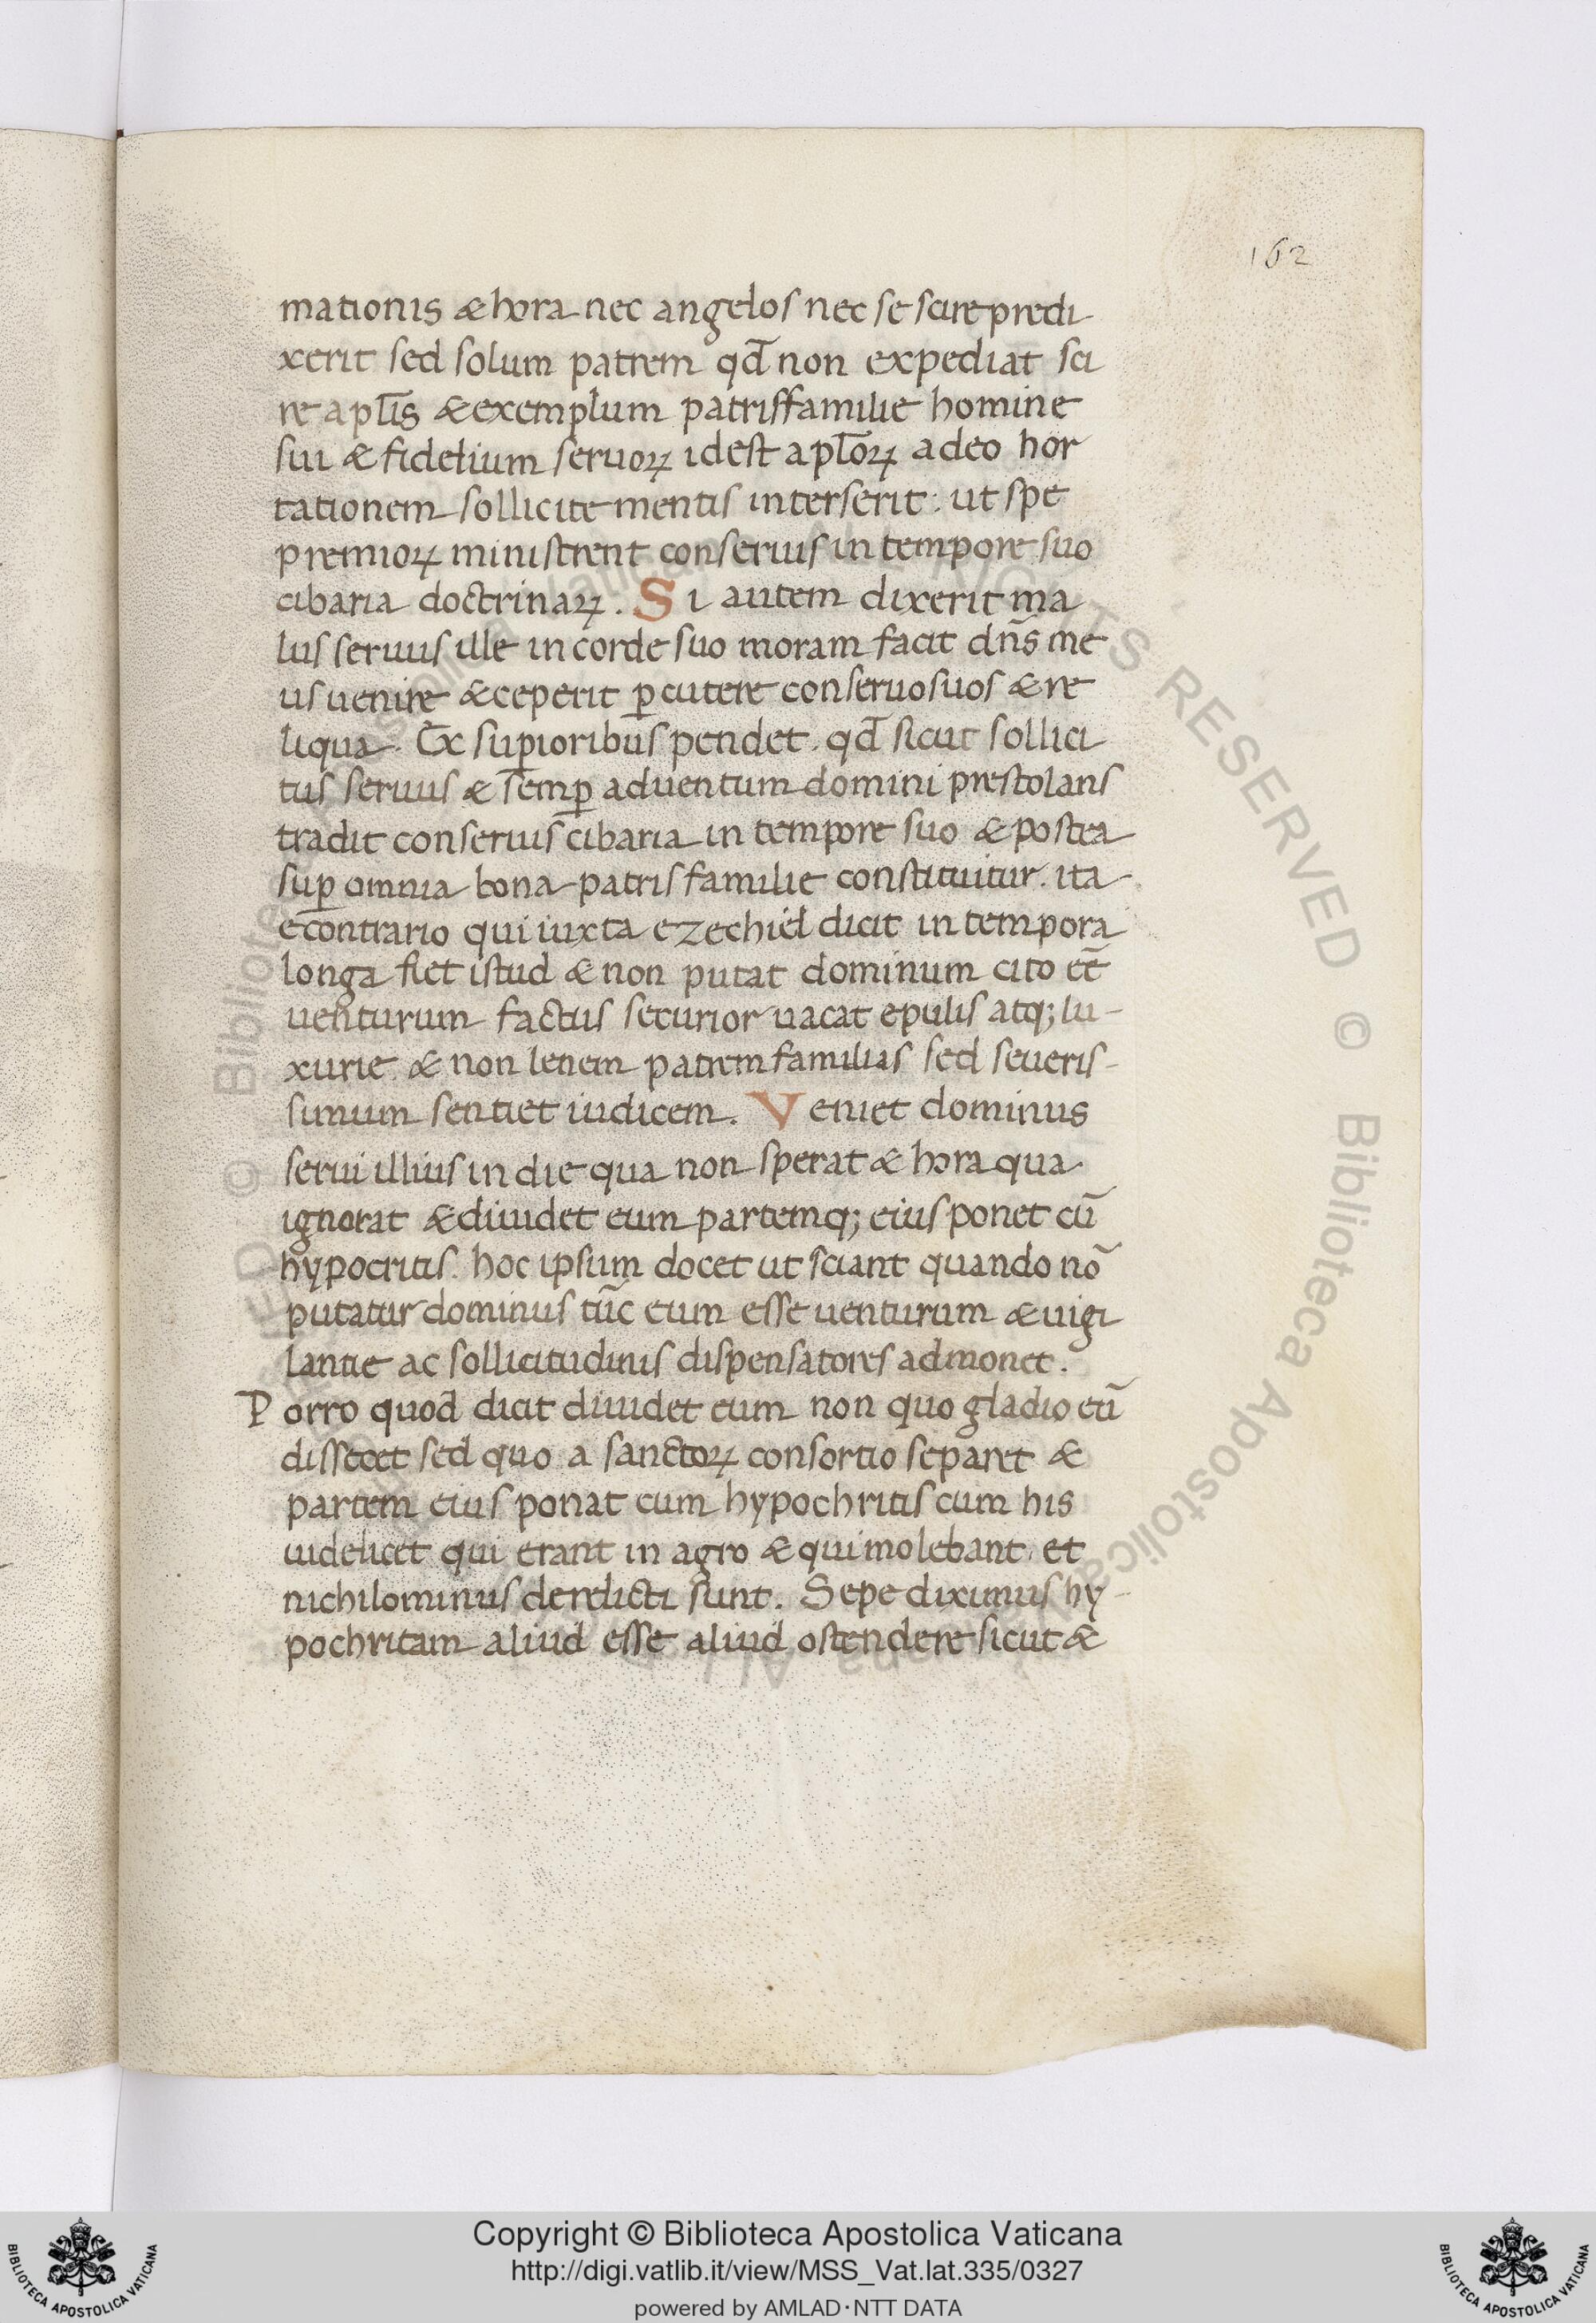 162
mationis & hora nec angelos nec se scire predi
xerit sed solum patrem qđ non expediat sci
re apl̄is & exemplum patriſfamilie homine
sui & fidelium seruoꝝ idest apl̄oꝝ adeo hor
tationem sollicite mentis interserit: ut spe
premioꝝ ministrent conseruis in tempore suo
cibaria doctrinaꝝ. Si autem dixerit ma
lus seruus ille in corde suo moram facit dn̄s me
us uenire & ceperit ꝑcutere conseruo suos & re
liqua. Ex suꝑioribus pendet. qđ sicut sollici
tus seruus & semꝑ aduentum domini prestolans
tradit conseruis cibaria in tempore suo & postea
suꝑ omnia bona patris familie constituitur. ita
econtrario qui iuxta ezechiel dicit in tempora
longa fiet istud & non putat dominum cito eē
uenturum factus securior uacat epulis atq; lu-
xurie. & non lenem patrem familias sed seueris-
simum sentiet iudicem. Veniet dominus
serui illius in die qua non sperat & hora qua
ignorat & diuidet eum partemq; eius ponet cū
hypocritis. hoc ipsum docet ut sciant quando nō
putatur dominus tūc eum esse uenturum & uigi
lantie ac sollicitudinis dispensatores admonet.
Porro quod dicit diuidet eum non quo gladio eū
dissecet sed quo a sanctoꝝ consortio separet &
partem eius ponat cum hypochritis cum his
uidelicet qui erant in agro & qui molebant. et
nichilominus derelicti sunt. Sepe diximus hy-
pochritam aliud esse aliud ostendere sicut &
Copyright © Biblioteca Apostolica Vaticana
http://digi.vatlib.it/view/MSS_Vat.lat.335/0327
powered by AMLAD·NTT DATA
BIBLIOTECA APOSTOLICA VATICANA
BIBLIOTECA APOSTOLICA VATICANA